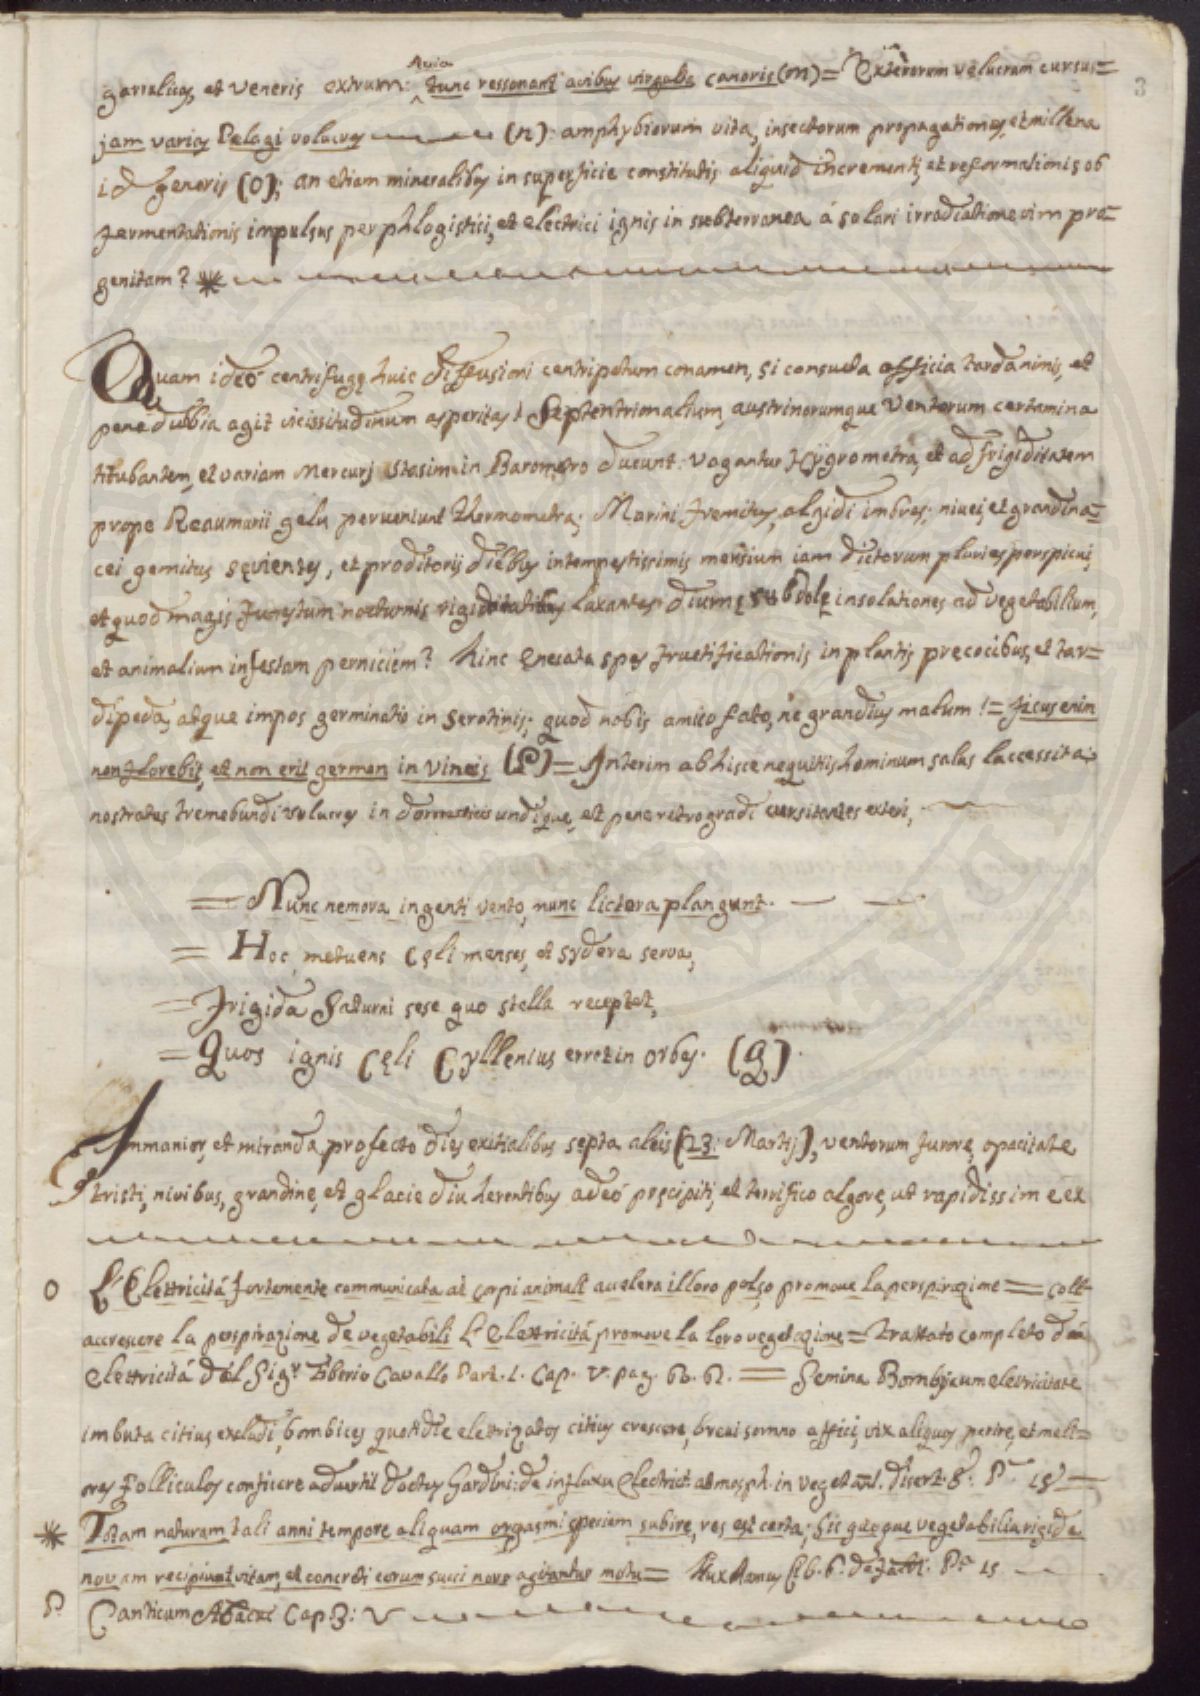 3
Avia
garralicos, et Veneris extrum: tunc ressonant avibus virgulta canoris (m) = Exterorum velucrum cursus=
jam varios Pelagi volucres (n): amphybiorum vita, insectorum propagationes, et millena
id generis (O); an etiam mineralibus in superficie constitutis aliquid incrementi, et reformationis ob
fermentationis impulsus per phlogistici, et electrici ignis in subterranea á solari irradiatione vim pro=
genitam? *
Quam ideó centrifugę huic diffusioni centripetum conamen, si consueta officia tarda nimis, et
pene dubbia agit vicissitudinum asperitas! Septentrionalium, austrinorumque Ventorum certamina
titubantem, et variam Mercurj stasim in Barometro ducunt: vagantur Hÿgrometra, et ad frigiditatem
prope Reaumurii gelu perveniunt thermometra; Marini fremitus, algidi imbres; nivei, et grandina=
cei gemitus sęvientes, et proditorij diebus intempestissimis mensium iam dictorum pluries perspicui,
et quod magis funestum nocturnis rigiditatibus laxantes diurnę subdolę insolationes ad vegetabilium,
et animalium infestam perniciem? Hinc enecata spes fructificationis in plantis precocibus, et tar=
dipeda, atque impos germinatio in serotinis; quod nobis amico fato, nè grandius malum! = ficus enim
non florebit, et non erit germen in vineis (P) = Interim ab hisce nequitiis hominum salus laccessita
nostrates tremebundi volucres in domesticis undique, et pene retrogradi cursitantes exteri,
= Nunc nemora ingenti vento, nunc lictora plangunt.
= Hoc metuens Cęli menses, et sydera serva,
= Frigida Saturni sese quo stella receptet,
= Quos ignis Cęli Cyllenius erret in orbes. (q)
Immanior, et miranda profecto dies exitialibus septa aleis (23: Martij), ventorum furore, opacitate
tristi, nivibus, grandine, et glacie diu herentibus adeó pręcipiti, et terrifico algore, ut rapidissime ex
O L'Elettricitá fortemente communicata ai corpi animali accelera il loro polso promove la perspirazione = coll
accrescere la perspirazione de vegetabili L'Elettricitá promove la loro vegetazione = Trattato completo d
Elettricitá del Sig.r Tiberio Cavallo Part. 1. Cap. V. pag. 60. 61. = Semina Bombÿcum electricitate
imbuta citius excludi, bombices quotidie eletrizatos citius crescere, brevi somno affici, vix aliquos perire, et meli=
ores folliculos conficere advertit doctus Gardini: de influxu Electrict. atmosph. in vegetant. disert. 8. P. 15 =
* Totam naturam tali anni tempore aliquam orgasmi speciem subire, res est certa; sic quęque vegetabilia rigida
novam recipiunt vitam, et concreti eorum succi novo agitantur motu = Huxhamus
P. Canticum Abacuc Cap 3: V